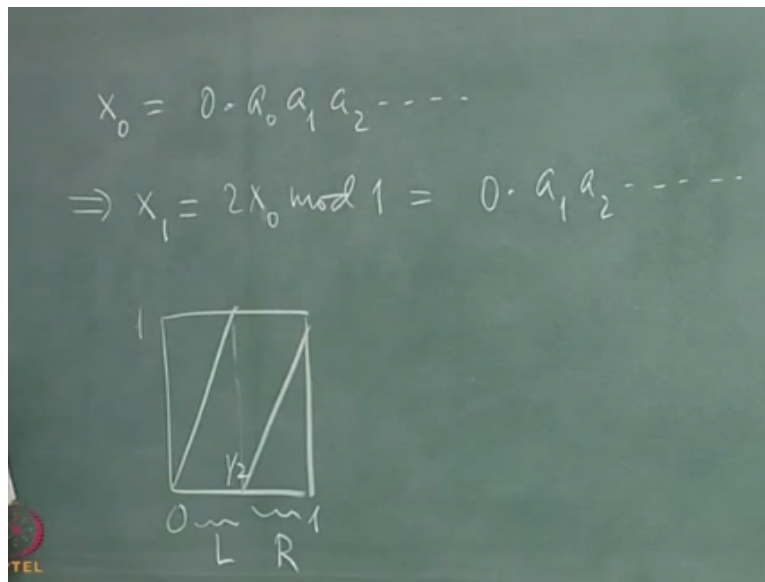 x₀ = 0.a₀ a₁ a₂ ----
⇒ x₁ = 2x₀ mod 1 = 0.a₁ a₂ -----
1
1/2
0 1
L R
PTEL